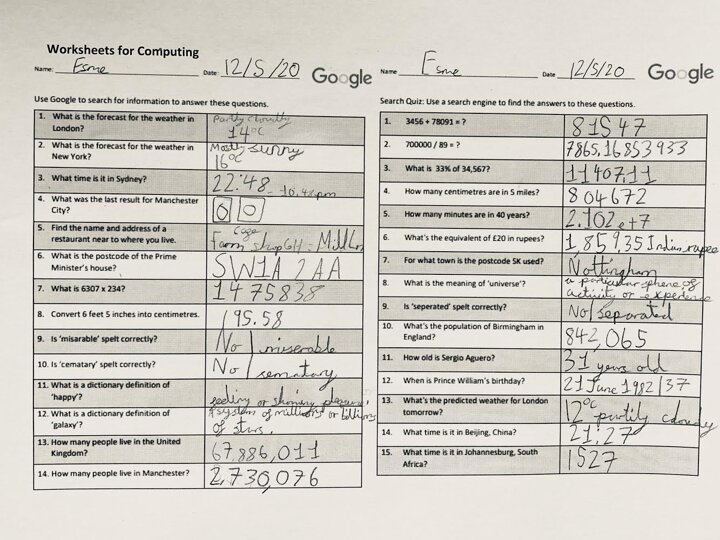 Worksheets for Computing
Name: Esme Date: 12/5/20 Google
Use Google to search for information to answer these questions.
1. What is the forecast for the weather in London? Partly cloudy 14°C
2. What is the forecast for the weather in New York? Mostly sunny 16°C
3. What time is it in Sydney? 22:48 - 10.48pm
4. What was the last result for Manchester City? 0 0
5. Find the name and address of a restaurant near to where you live. Farm shop
6. What is the postcode of the Prime Minister's house? SW1A 2AA
7. What is 6307 x 234? 1475838
8. Convert 6 feet 5 inches into centimetres. 195.58
9. Is 'misarable' spelt correctly? No/miserable
10. Is 'cematary' spelt correctly? No/cemetary
11. What is a dictionary definition of 'happy'? feeling or showing pleasure
12. What is a dictionary definition of 'galaxy'? a system of millions or billions of stars.
13. How many people live in the United Kingdom? 67,886,011
14. How many people live in Manchester? 2,730,076
Name Esme Date 12/5/20 Google
Search Quiz: Use a search engine to find the answers to these questions.
1. 3456 + 78091 = ? 81547
2. 700000 / 89 = ? 7865.16853933
3. What is 33% of 34,567? 11407.11
4. How many centimetres are in 5 miles? 804672
5. How many minutes are in 40 years? 2.102e+7
6. What's the equivalent of £20 in rupees? 1,859.35 Indian rupee
7. For what town is the postcode SK used? Nottingham
8. What is the meaning of 'universe'? a particular sphere of activity or experience
9. Is 'seperated' spelt correctly? No/separated
10. What's the population of Birmingham in England? 842,065
11. How old is Sergio Aguero? 31 years old
12. When is Prince William's birthday? 21 June 1982/37
13. What's the predicted weather for London tomorrow? 12°C partily cloudy
14. What time is it in Beijing, China? 21:27
15. What time is it in Johannesburg, South Africa? 1527